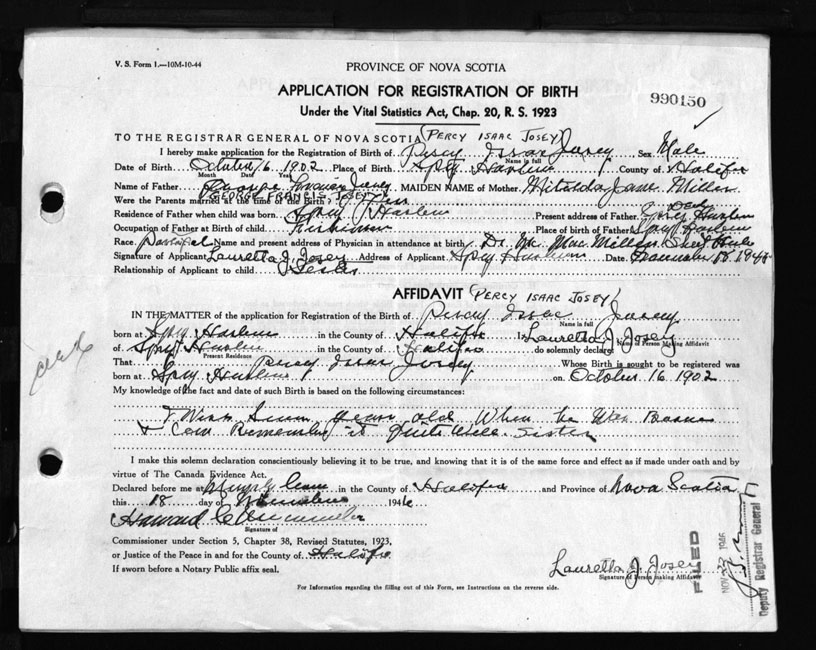 V. S. Form 1.—10M-10-44
PROVINCE OF NOVA SCOTIA
APPLICATION FOR REGISTRATION OF BIRTH
990150
Under the Vital Statistics Act, Chap. 20, R. S. 1923
TO THE REGISTRAR GENERAL OF NOVA SCOTIA (PERCY ISAAC JOSEY)
I hereby make application for the Registration of Birth of Percy Isaac Josey Sex Male
Name in full
Date of Birth October 16 1902 Place of Birth Spry Harbour County of Halifax
Month Day Year
Name of Father George Francis Josey MAIDEN NAME of Mother Matilda Jane
(GEORGE FRANCIS JOSEY)
Were the Parents married at the time of this Birth? Yes Dead
Residence of Father when child was born Spry Harbour Present address of Father Spry Harbour
Occupation of Father at Birth of child Fisherman Place of birth of Father Spry Harbour
Race Name and present address of Physician in attendance at birth Dr. Mc Millan
Signature of Applicant Lauretta J. Josey Address of Applicant Spry Harbour Date
Relationship of Applicant to child Sister
AFFIDAVIT (PERCY ISAAC JOSEY)
IN THE MATTER of the application for the Registration of the Birth of Percy Isaac Josey
Name in full
born at Spry Harbour in the County of Halifax I, Lauretta J. Josey
Name of Person Making Affidavit
of Spry Harbour in the County of Halifax do solemnly declare:
Present Residence
That Percy Isaac Josey Whose Birth is sought to be registered was
born at Spry Harbour on October 16 1902
My knowledge of the fact and date of such Birth is based on the following circumstances:
I Was years old When he Was Born
& Can Remember it Quite Well. Sister
I make this solemn declaration conscientiously believing it to be true, and knowing that it is of the same force and effect as if made under oath and by
virtue of The Canada Evidence Act.
Declared before me at in the County of Halifax and Province of Nova Scotia
this 18 day of November 1946
Howard
Signature of
Commissioner under Section 5, Chapter 38, Revised Statutes, 1923,
or Justice of the Peace in and for the County of Halifax
If sworn before a Notary Public affix seal.
Lauretta J. Josey
Signature of Person making Affidavit
For Information regarding the filling out of this Form, see Instructions on the reverse side.
FILED
NOV 1946
Deputy Registrar General